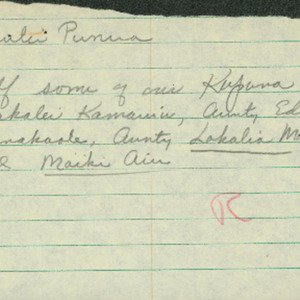 alei Punua
If some of our Kupuna
akalei Kamauu, Aunty Ed
anakaole, Aunty Lokalia M
& Maiki Aiu
R